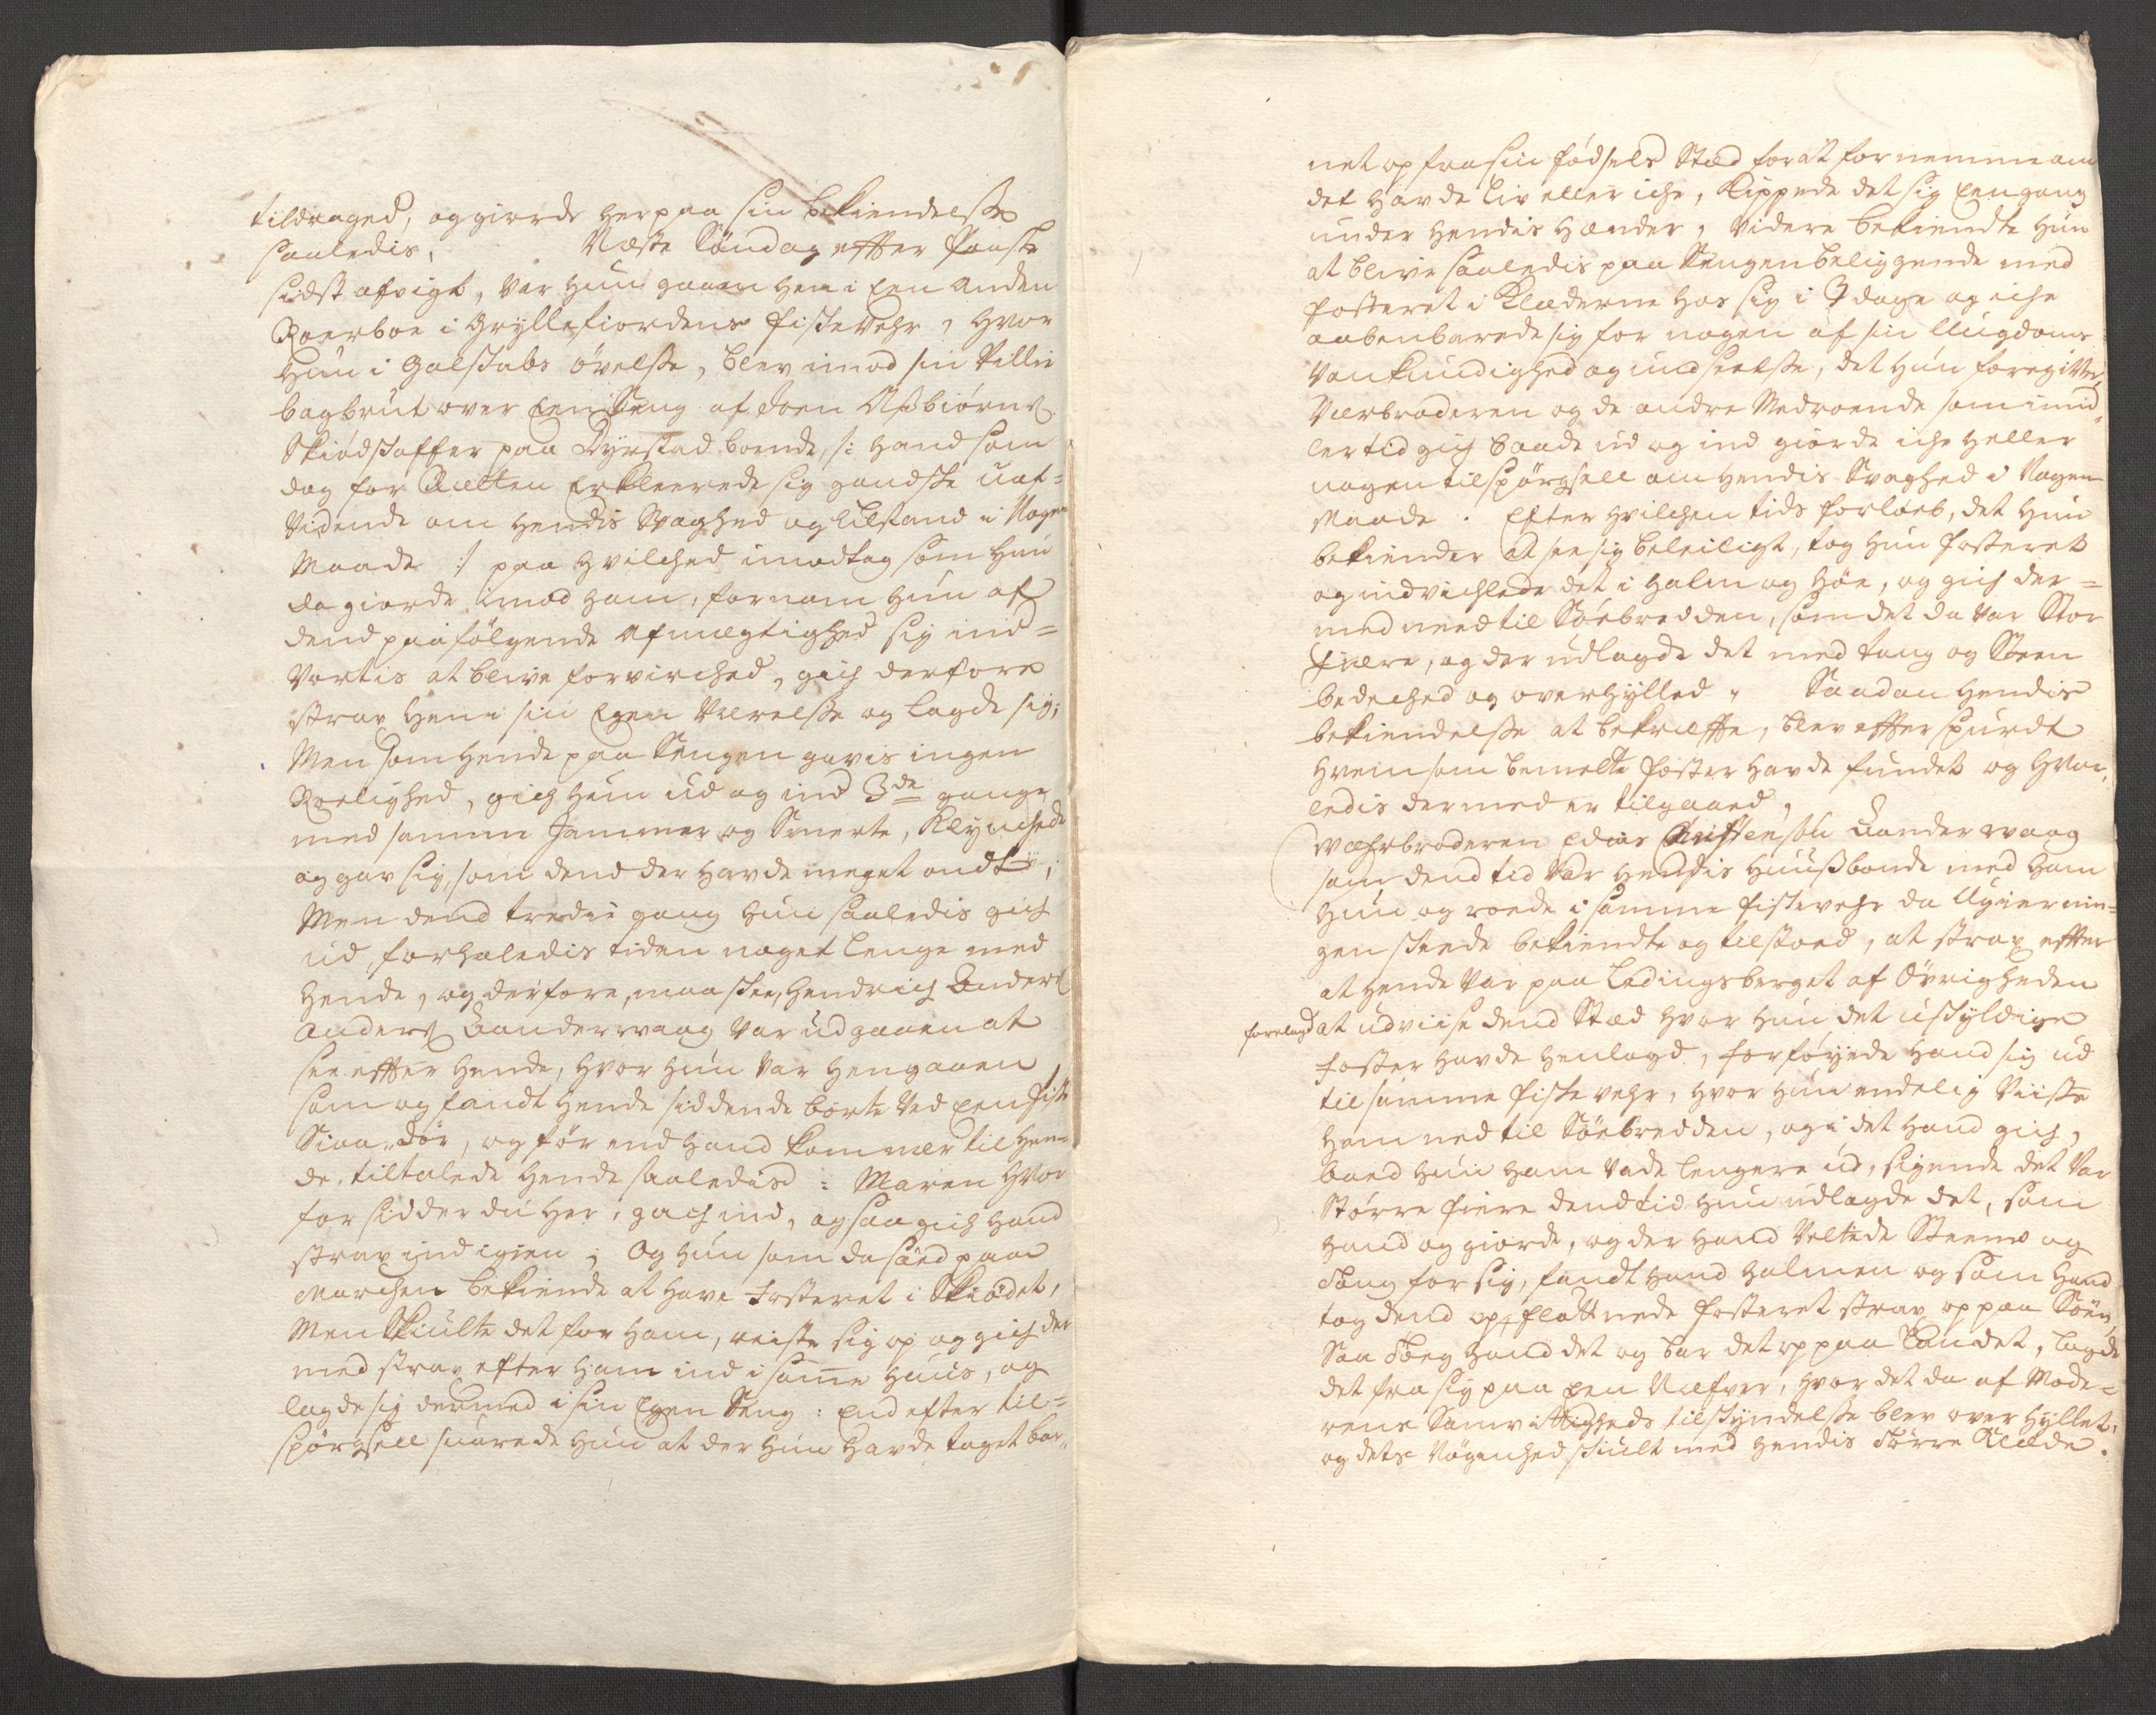 tildraged, og giorde herpaa sin bekiendelsse
saaledis, Næste Søndag effter Paaske
sidst afvigt, var hun gaaen hen i Een anden
Roerboe i Gryllefiordens fiskeVehr, hvor
Hun i Galskabs øvelsse, blev imod sin Villie
bagbrut over Een Seng af Joen Aßbiørns.
Skiødskaffer paa Dyrstad boende, /: hand som
dag for Retten Erkleerede sig gandske uaf-
vidende om hendis Svaghed og tilstand i Nogen
Maade :/ paa hvilched imodtag som hun
da giorde imod ham, fornam hun af
dend paafølgende Afmegtighed sig ind-
Vortis at blive forvirched, gich derfore
strax hen i sin Egen Værelsse og lagde sig;
Men som hende paa Sengen gavis ingen
Roelighed, gich hun ud og ind 3de gange
med samme Jammer og Smerte, Klynchede
og gav sig, som dend der havde meget ondt;
Men dend tredie gang hun saaledis gich
ud, forhaledis tiden noget lenge med
hende, og derfore, maa skee, Hendrich Anders
Anders Sandervaag var udgaaen at
see effter hende, hvor hun var hengaaen
som og fandt hende siddende borte ved Een fiske
Siaa, dør, og før end hand kommer til hen-
de, tiltalede hende saaledis: Maren hvor
for sidder du her, gach ind, og saa gich hand
strax ind igien; Og hun som da sad paa
Marchen bekiende at have Fosteret i Skiødet,
Men Skiulte det for ham, reiste sig op og gich der
med strax efter ham ind i samme Huus, og
lagde sig dermed i sin Egen Seng: End efter til-
spørgsell suarede hun at der hun havde taget bar-
net op fra sin fødsels Stæd for at fornemme om
det havde liv eller iche, Kippede det sig Eengang
under hendis Hænder, Videre bekiendte hun
at blive saaledis paa Sengen beliggende med
fosteret i Klæderne hos sig i 3 dage og iche
aabenbarede sig for nogen af sin Ungdoms
Vankundighed og undseelsse, det hun foregitter,
Værbroderen og de andre Medroende som imid-
lertid gich baade ud og ind giorde iche heller
nogen tilspørgsell om hendis Svaghed i Nogen
Maade. Efter hvilchen tids forløeb, det hun
bekiender at see sig beleiligt, tog hun fosteret
og indvichlede det i Halm og Høe, og gich der-
med need til Søebredden, som det da var Stor
fiære, og der udlagde det med tang og Steen
bedeched og overhylled. Saadan hendis
bekiendelsse at bekræffte, blev effter spurdt
Hvem som bemelte foster havde fundet og hvor,
ledis dermed er tilgaaed,
Wæhrbroderen Elias Christensøn Sandervaag
som dend tid var hendis Huußbonde med ham
Hun og roede i samme fiskevehr da Ugierning-
gen skeede bekiendte og tilstoed, at strax effter
at hende var paa Ledingsberget af Øvrigheden
forelagd at udviise dend Stæd hvor hun det uskyldige
foster havde henlagd, forføyede hand sig ud
til samme fiskevehr, hvor hun endelig Viiste
ham ned til Søebredden, og i det hand gich,
baed hun ham vade lengere ud, sigende det var
Større fiære dend tid hun udlagde det, som
hand og giorde, og der hand Veltede Steene og
Tang for sig, fandt hand halmen og som hand
tog dend op, flottnede fosteret strax op paa Søen,
Saa Tog hand det og bar det op paa Landet, lagde
det fra sig paa Een Næfver, hvor det da af Mode-
rens Samvittigheds tilskyndelsse blev over hyllet,
og dets Nøgenhed skiult med hendis Tørre Klæde.